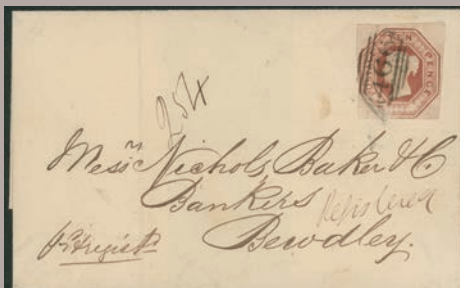 TEN PENCE
254
Messrs Nichols, Baker & C
Bankers
Registered
Bewdley.